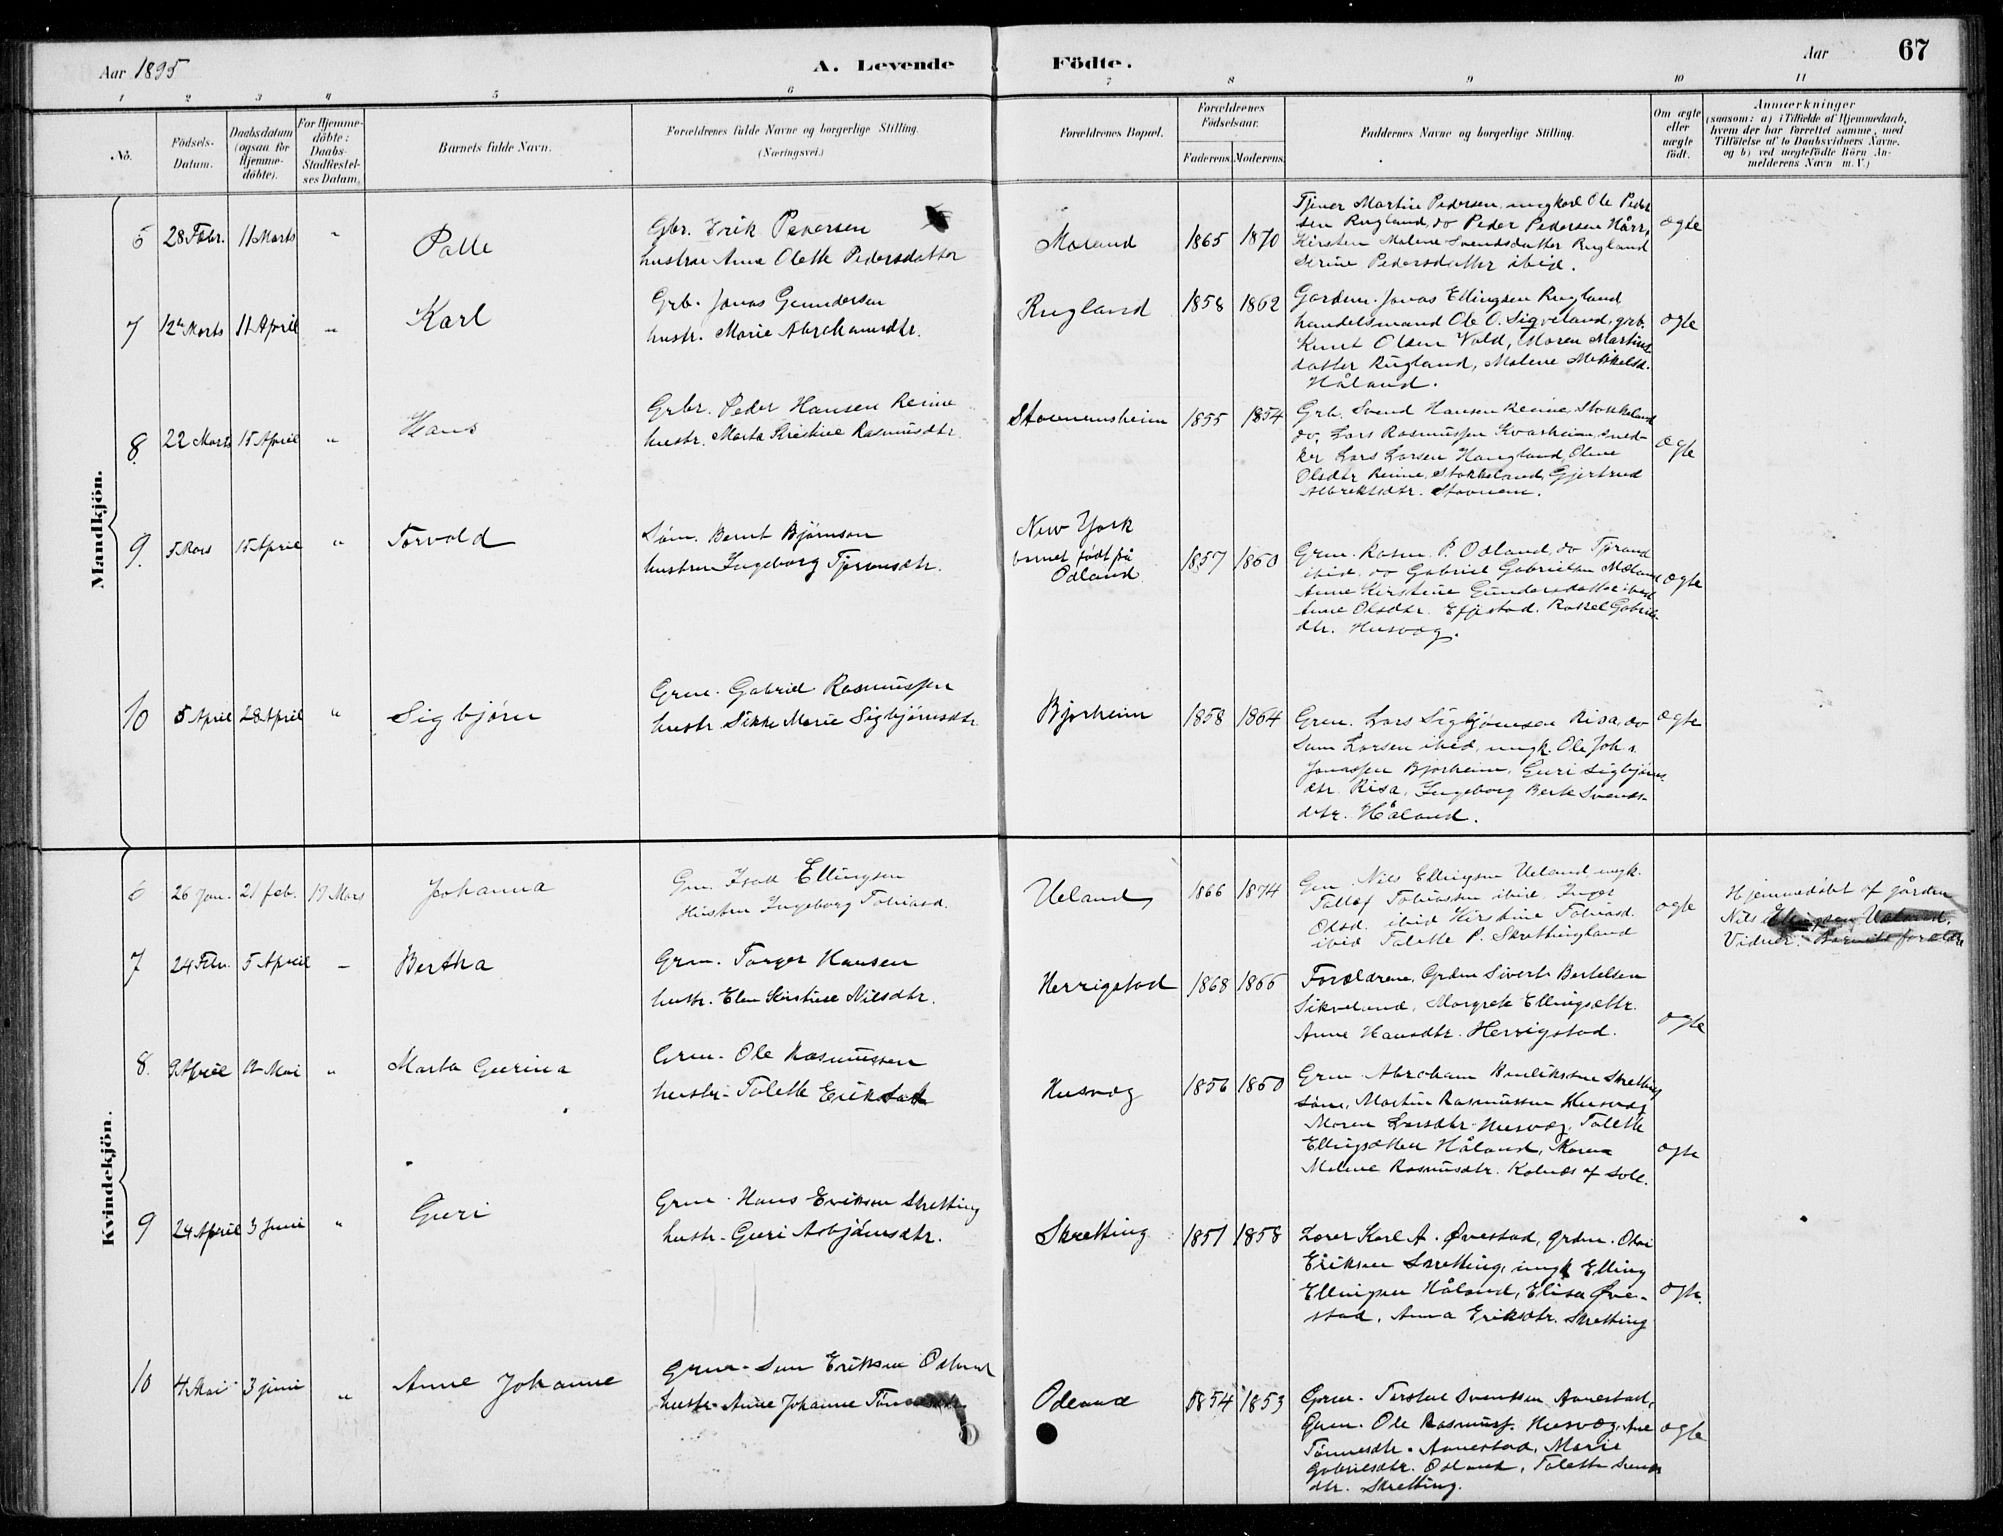 Aar 1895
A. Levende
Fødte.
Aar
67
1 2 3 4 5 6 7 8 9 10 11
No.
Fødsels-Datum.
Daabsdatum (ogsaa for Hjemme-døbte).
For Hjemme-døbte: Daabs-Stadfæstel-ses Datum.
Barnets fulde Navn.
Forældrenes fulde Navne og borgerlige Stilling. (Næringsvei.)
Forældrenes Bopæl.
Forældrenes Fødselsaar.
Faderens. Moderens.
Faddernes Navne og borgerlige Stilling.
Om ægte eller uægte født.
Anmærkninger
(saasom: a) i Tilfælde af Hjemmedaab, hvem der har forrettet samme, med Tilføielse af to Daabsvidners Navne. og b) ved uægtefødte Børn An-melderens Navn m. V.)
Mandkjön.
6 28 Febr. 11 Marts " Palle
Gbr. Erik Pedersen
hustru Anne Olette Pedersdatter
Moland 1865 1870
Tjener Martin Pedersen, ungkarl Ole Peder
sen Rugland, do Peder Pedersen Hårr,
Kirsten Malene Svendsdatter Rugland
Serine Pedersdatter ibid.
ægte
7 12te Marts 11 April " Karl
Grb. Jonas Gundersen
hustr. Marie Abrahamsdtr.
Rugland 1858 1862
Gardm. Jonas Ellingsen Rugland
handelsmand Ole O. Sigveland, grb.
Knut Olsen Vold, Maren Martins
datter Rugland, Malene Mikkelsd.
Håland.
ægte
8. 22 Marts 15 April " Hans
Grbr. Peder Hansen Reime
hustr. Marta Kristine Rasmusdtr.
Stavnemsheim 1855 1854
Grb. Svend Hansen Reime, Stokkeland
do. Lars Rasmussen Kvasheim, sned-
ker Lars Larsen Haugland, Oline
Olsdtr Reime, Stokkeland, Gjertrud
Albrektsdtr. Stavnem.
ægte
9. 5 Mars 15 April " Torvald
Søm. Bernt Bjørnson
hustru Ingeborg Tjøransdtr.
New York
barnet født på
Odland
1857 1860
Grm. Rasm. P. Odland, do Tjørand
ibid. do Gabriel Gabrielsen Mæland
Anne Kirstine Gundersdatter ibid
Anne Olsdtr. Efjestad. Rakel Gabriels
dtr. Husvæg.
ægte
10 5 April 28 April " Sigbjørn
Grm. Gabriel Rasmussen
hustr. Sikke Marie Sigbjørnsdtr.
Bjorheim 1858 1864
Grm. Lars Sigbjørnsen Risa, do
Sem Larsen ibid, ungk. Ole Joh.
Jonassen Bjorheim, Guri Sigbjørns
dtr. Risa, Ingeborg Berte Svends-
dtr. Håland.
ægte
Kvindekjön.
6 26 Jan. 21 feb. 17 Mars Johanna
Gm. Isak Ellingsen
Hustru Ingeborg Tobiasd.
Ueland 1866 1874
Gm. Nils Ellingsen Ueland ungk.
Tollef Tobiassen ibid, Inger
Olsd. ibid Kirstine Tobiasd.
ibid Talette P. Skrettingland
ægte
Hjemmedøbt af gårdm
Nils Ellingsen Ueland.
Vidner. Barnets forældre
7 24 Febr. 5 April " Bertha
Grm. Torger Hansen
hustr. Elen Kirstine Nilsdtr.
Herrigstad 1868 1866
Forældrene, Grdm Sivert Bertelsen
Sikveland, Margrete Ellingsdtr.
Anne Hansdtr. Herrigstad.
ægte
8. 9 April 12 Mai " Marta Gurina
Grm. Ole Rasmussen
hustr. Talette Eriksd
Husvæg 1856 1860
Grm Abraham Skretting
Søm, Martin Rasmussen Husvæg
Maren Larsdtr. Husvæg, Talette
Ellingsdatter Håland, Karen
Malene Rasmusdtr. Kalnæs af Sole.
ægte
9 24 April 3 Juni " Guri
Grm. Hans Eriksen Skretting
hustr. Guri Asbjørnsdtr.
Skretting 1851 1858
Lærer Karl A. Øvestad, grdm. Olai
Eriksen Skretting, ungk Elling
Ellingsen Håland, Elisa Øve-
stad, Anna Eriksdtr. Skretting
ægte.
10 4 Mai 3 juni " Anne Johanne
Grm. Sem Eriksen Odland
hustr. Anne Johanne
Odland 1854 1853
Grm. Torsten Svendsen Aanestad,
Grm. Ole Rasmuss. Husvæg, Ane
Tønnesdtr. Aanestad, Marie
Gabrielsdtr. Odland, Talette Svends
dtr. Skretting.
ægte